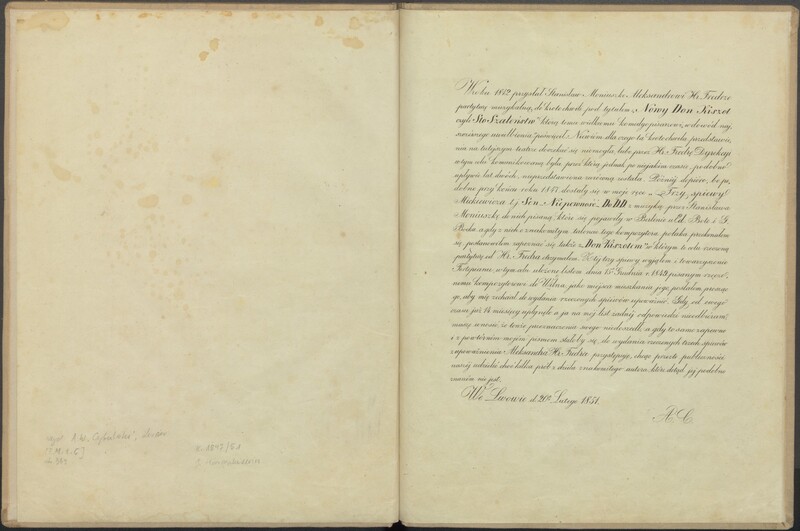 W roku 1842 przysłał Stanisław Moniuszko Aleksandrowi Hr. Fredrze
partyturę muzykalną, do krotochwili pod tytułem „Nowy Don Kiszot
czyli Sto Szaleństw" którą temu wielkiemu komedyo pisarzowi, w dowód naj
swego uwielbienia poświęcił. Niewiem dla czego ta krotochwila przedstawio
na na tutejszym teatrze doczekać się niemogła, lubo przez Hr. Fredrę Dyrekcyi
w tym celu kommunikowaną była, przez którą jednak po niejakim czasie, podobno
upływie lat dwóch, nieprzedstawiona zwróconą została. Później dopiero, bo po
dobno przy końcu roku 1847 dostały się w moje ręce „Trzy śpiewy"
Mickiewicza t.j. Sen, Niepewność, Do DD z muzyką przez Stanisława
Moniuszkę do nich pisaną, które się pojawiły w Berlinie u Ed. Bote & G.
Bocka, a gdy z nich o znakomitym talencie tego kompozytora polaka przekonałem
się, postanowiłem zapoznać się także z „Don Kiszotem" w którym to celu rzeczoną
partyturę od Hr. Fredra otrzymałem. Z tej trzy śpiewy wyjąłem z towarzyszenie
Fortepianu, w tym celu ułożone, listem dnia 25 Grudnia r. 1849 pisanym rzeczo
nemu kompozytorowi do Wilna, jako miejsca mieszkania jego, posłałem prosząc
go, aby mię zechciał do wydania rzeczonych śpiewów upoważnić. Gdy od owego
czasu już 14 miesięcy upłynęło a ja na mój list żadnej odpowiedzi nieodbieram,
muszę wnosić, że tenże przeznaczenia swego niedoszedł, a gdy to samo zapewne
i z powtórnem mojem pismem stałoby się, do wydania rzeczonych trzech śpiewów
z upoważnienia Aleksandra Hr. Fredra przystępuję, chcąc przeto publiczności
naszej udzielić choć kilka prób z dzieła znakomitego autora, które dotąd jej podobno
znanem nie jest.
We Lwowie d. 20go Lutego 1851.
A. C.